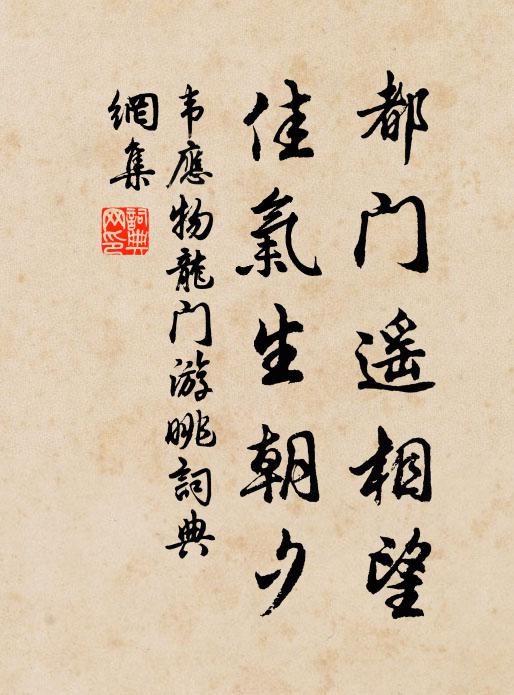 都门遥相望
佳氣生朝夕
韦應物龍门游眺詞典
網集
詞典
网印